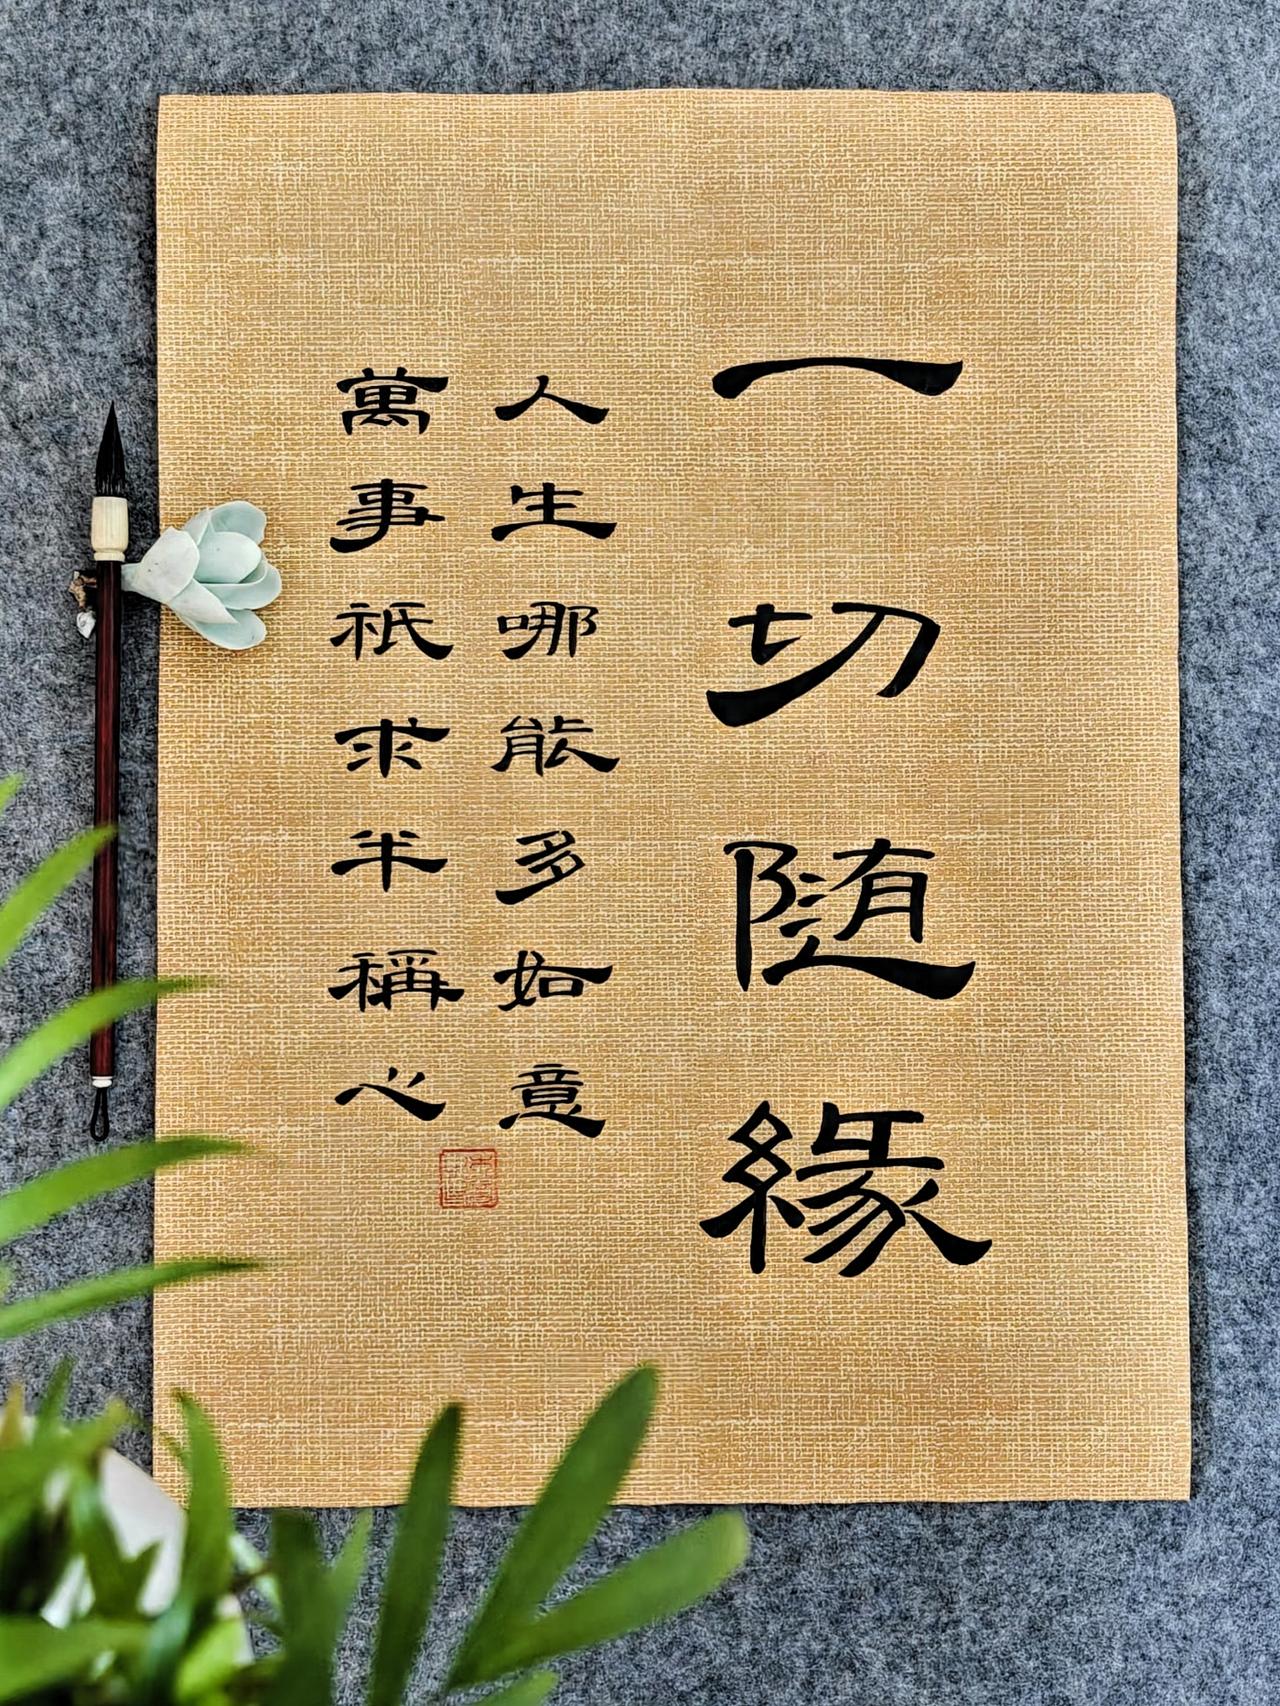 一切随緣
人生哪能多如意
萬事祇求半稱心